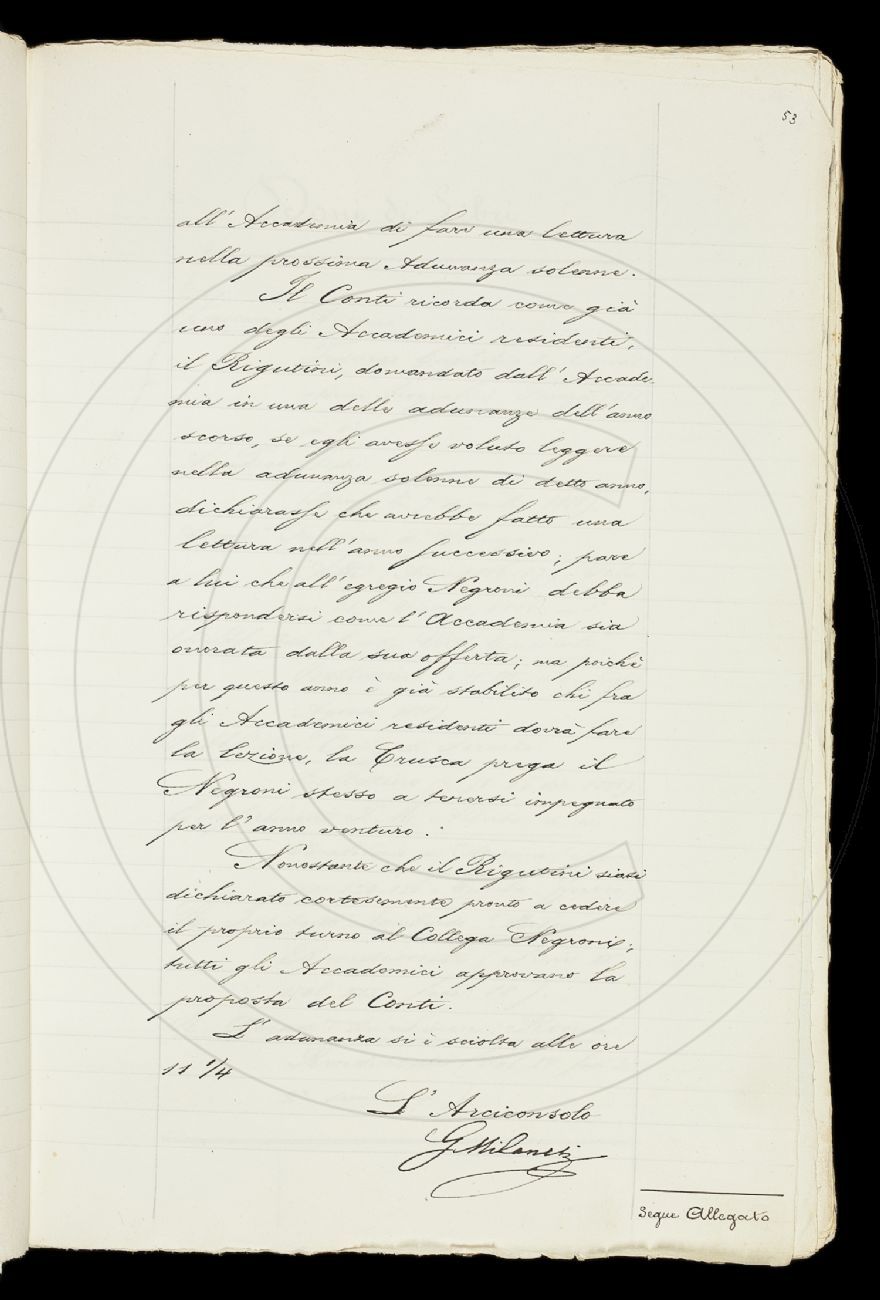 53
all' Accademia di fare una lettura
nella prossima Adunanza solenne.
Il Conti ricorda come già
uno degli Accademici residenti,
il Rigutini, domandato dall' Accade-
mia in una delle adunanze dell'anno
scorso, se egli avesse voluto leggere
nella adunanza solenne di detto anno,
dichiarasse che avrebbe fatto una
lettura nell'anno successivo; pare
a lui che all'egregio Negroni debba
rispondersi come l'Accademia sia
onorata dalla sua offerta; ma poichè
per questo anno è già stabilito chi fra
gli Accademici residenti dovrà fare
la lezione, la Crusca prega il
Negroni stesso a tenersi impegnato
per l'anno venturo.
Nonostante che il Rigutini siasi
dichiarato cortesemente pronto a cedere
il proprio turno al Collega Negroni;
tutti gli Accademici approvano la
proposta del Conti.
L'adunanza si è sciolta alle ore
11 1/4
L'Arciconsolo
G Milanesi
Segue Allegato